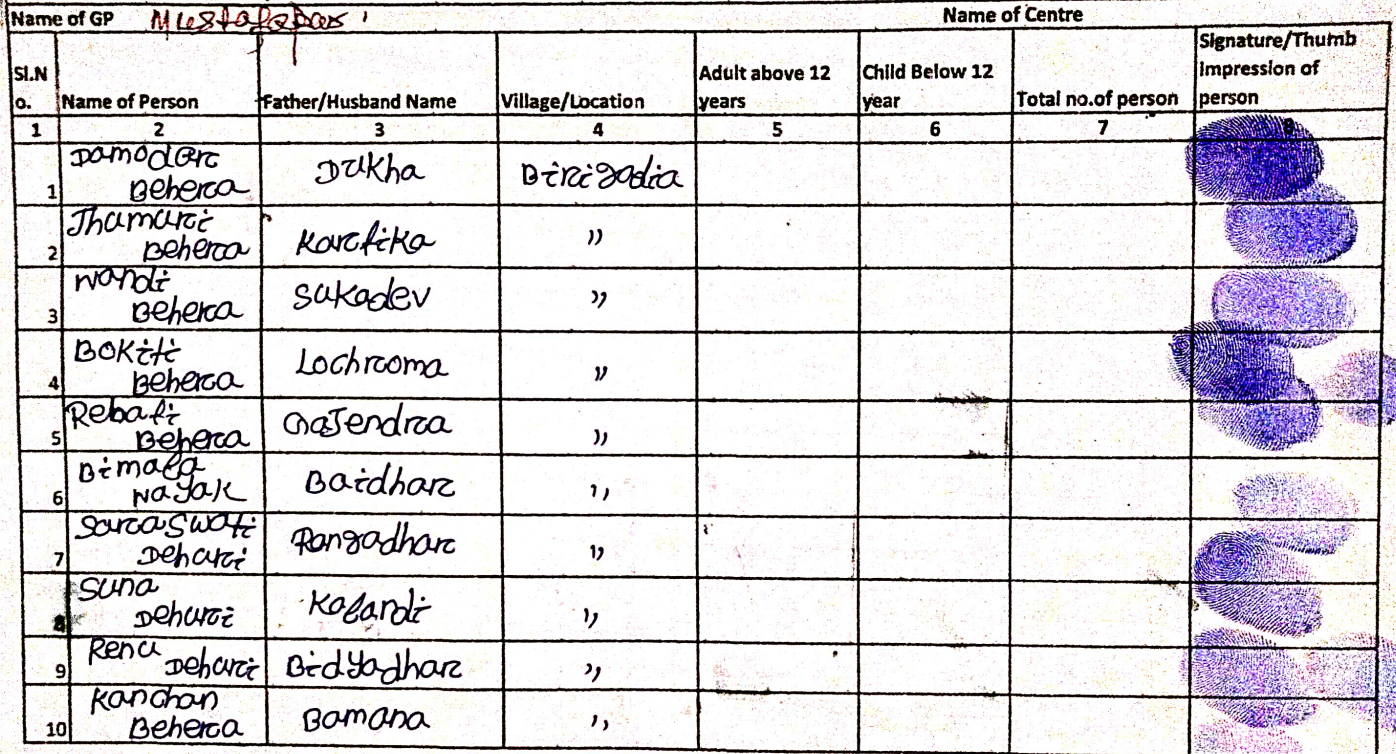 Name of GP Mustafapur Name of Centre
Sl.No. Name of Person Father/Husband Name Village/Location Adult above 12 years Child Below 12 year Total no.of person Signature/Thumb Impression of person
1 2 3 4 5 6 7 8
1 Damodar Behera Dukha Birigadia
2 Jhamuri Behera Kartika ,,
3 Nandi Behera Sukadev ,,
4 Bokiti Behera Lochroma ,,
5 Rebati Behera Gajendra ,,
6 Bimala Nayak Baidhar ,,
7 Saraswati Dehuri Rangadhar ,,
8 Suna Dehuri Kalandi ,,
9 Renu Dehuri Bidyadhar ,,
10 Kanchan Behera Bamana ,,